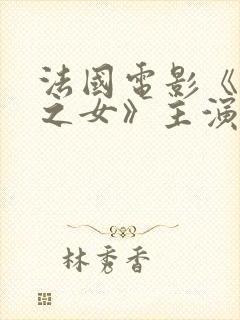 法國電影《
之女》主演
林秀香